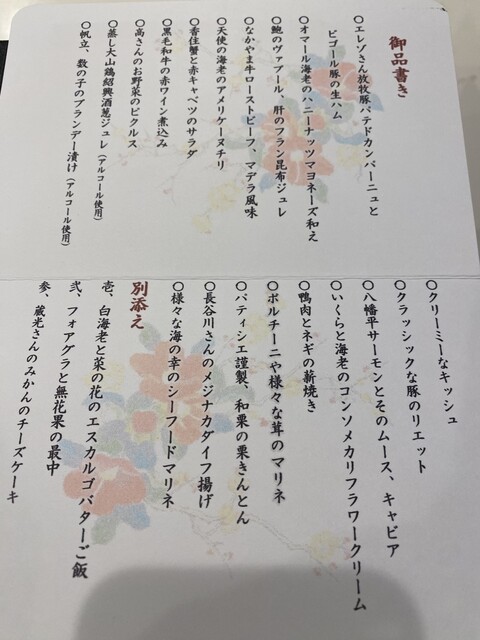 御品書き
○エレゾさん放牧豚パテドカンパーニュと
ビゴール豚の生ハム
○オマール海老のハニーナッツマヨネーズ和え
○鮑のヴァプール、肝のフラン昆布ジュレ
○なかやま牛ローストビーフ、マデラ風味
○天使の海老のアメリケーヌチリ
○香住蟹と赤キャベツのサラダ
○黒毛和牛の赤ワイン煮込み
○高さんのお野菜のピクルス
○蒸し大山鶏紹興酒葱ジュレ(アルコール使用)
○帆立、数の子のブランデー漬け(アルコール使用)
○クリーミーなキッシュ
○クラッシックな豚のリエット
○八幡平サーモンとそのムース、キャビア
○いくらと海老のコンソメカリフラワークリーム
○鴨肉とネギの薪焼き
○ポルチーニや様々な茸のマリネ
○パティシエ謹製、和栗の栗きんとん
○長谷川さんのメジナカダイフ揚げ
○様々な海の幸のシーフードマリネ
別添え
壱、白海老と菜の花のエスカルゴバターご飯
弐、フォアグラと無花果の最中
参、蔵光さんのみかんのチーズケーキ